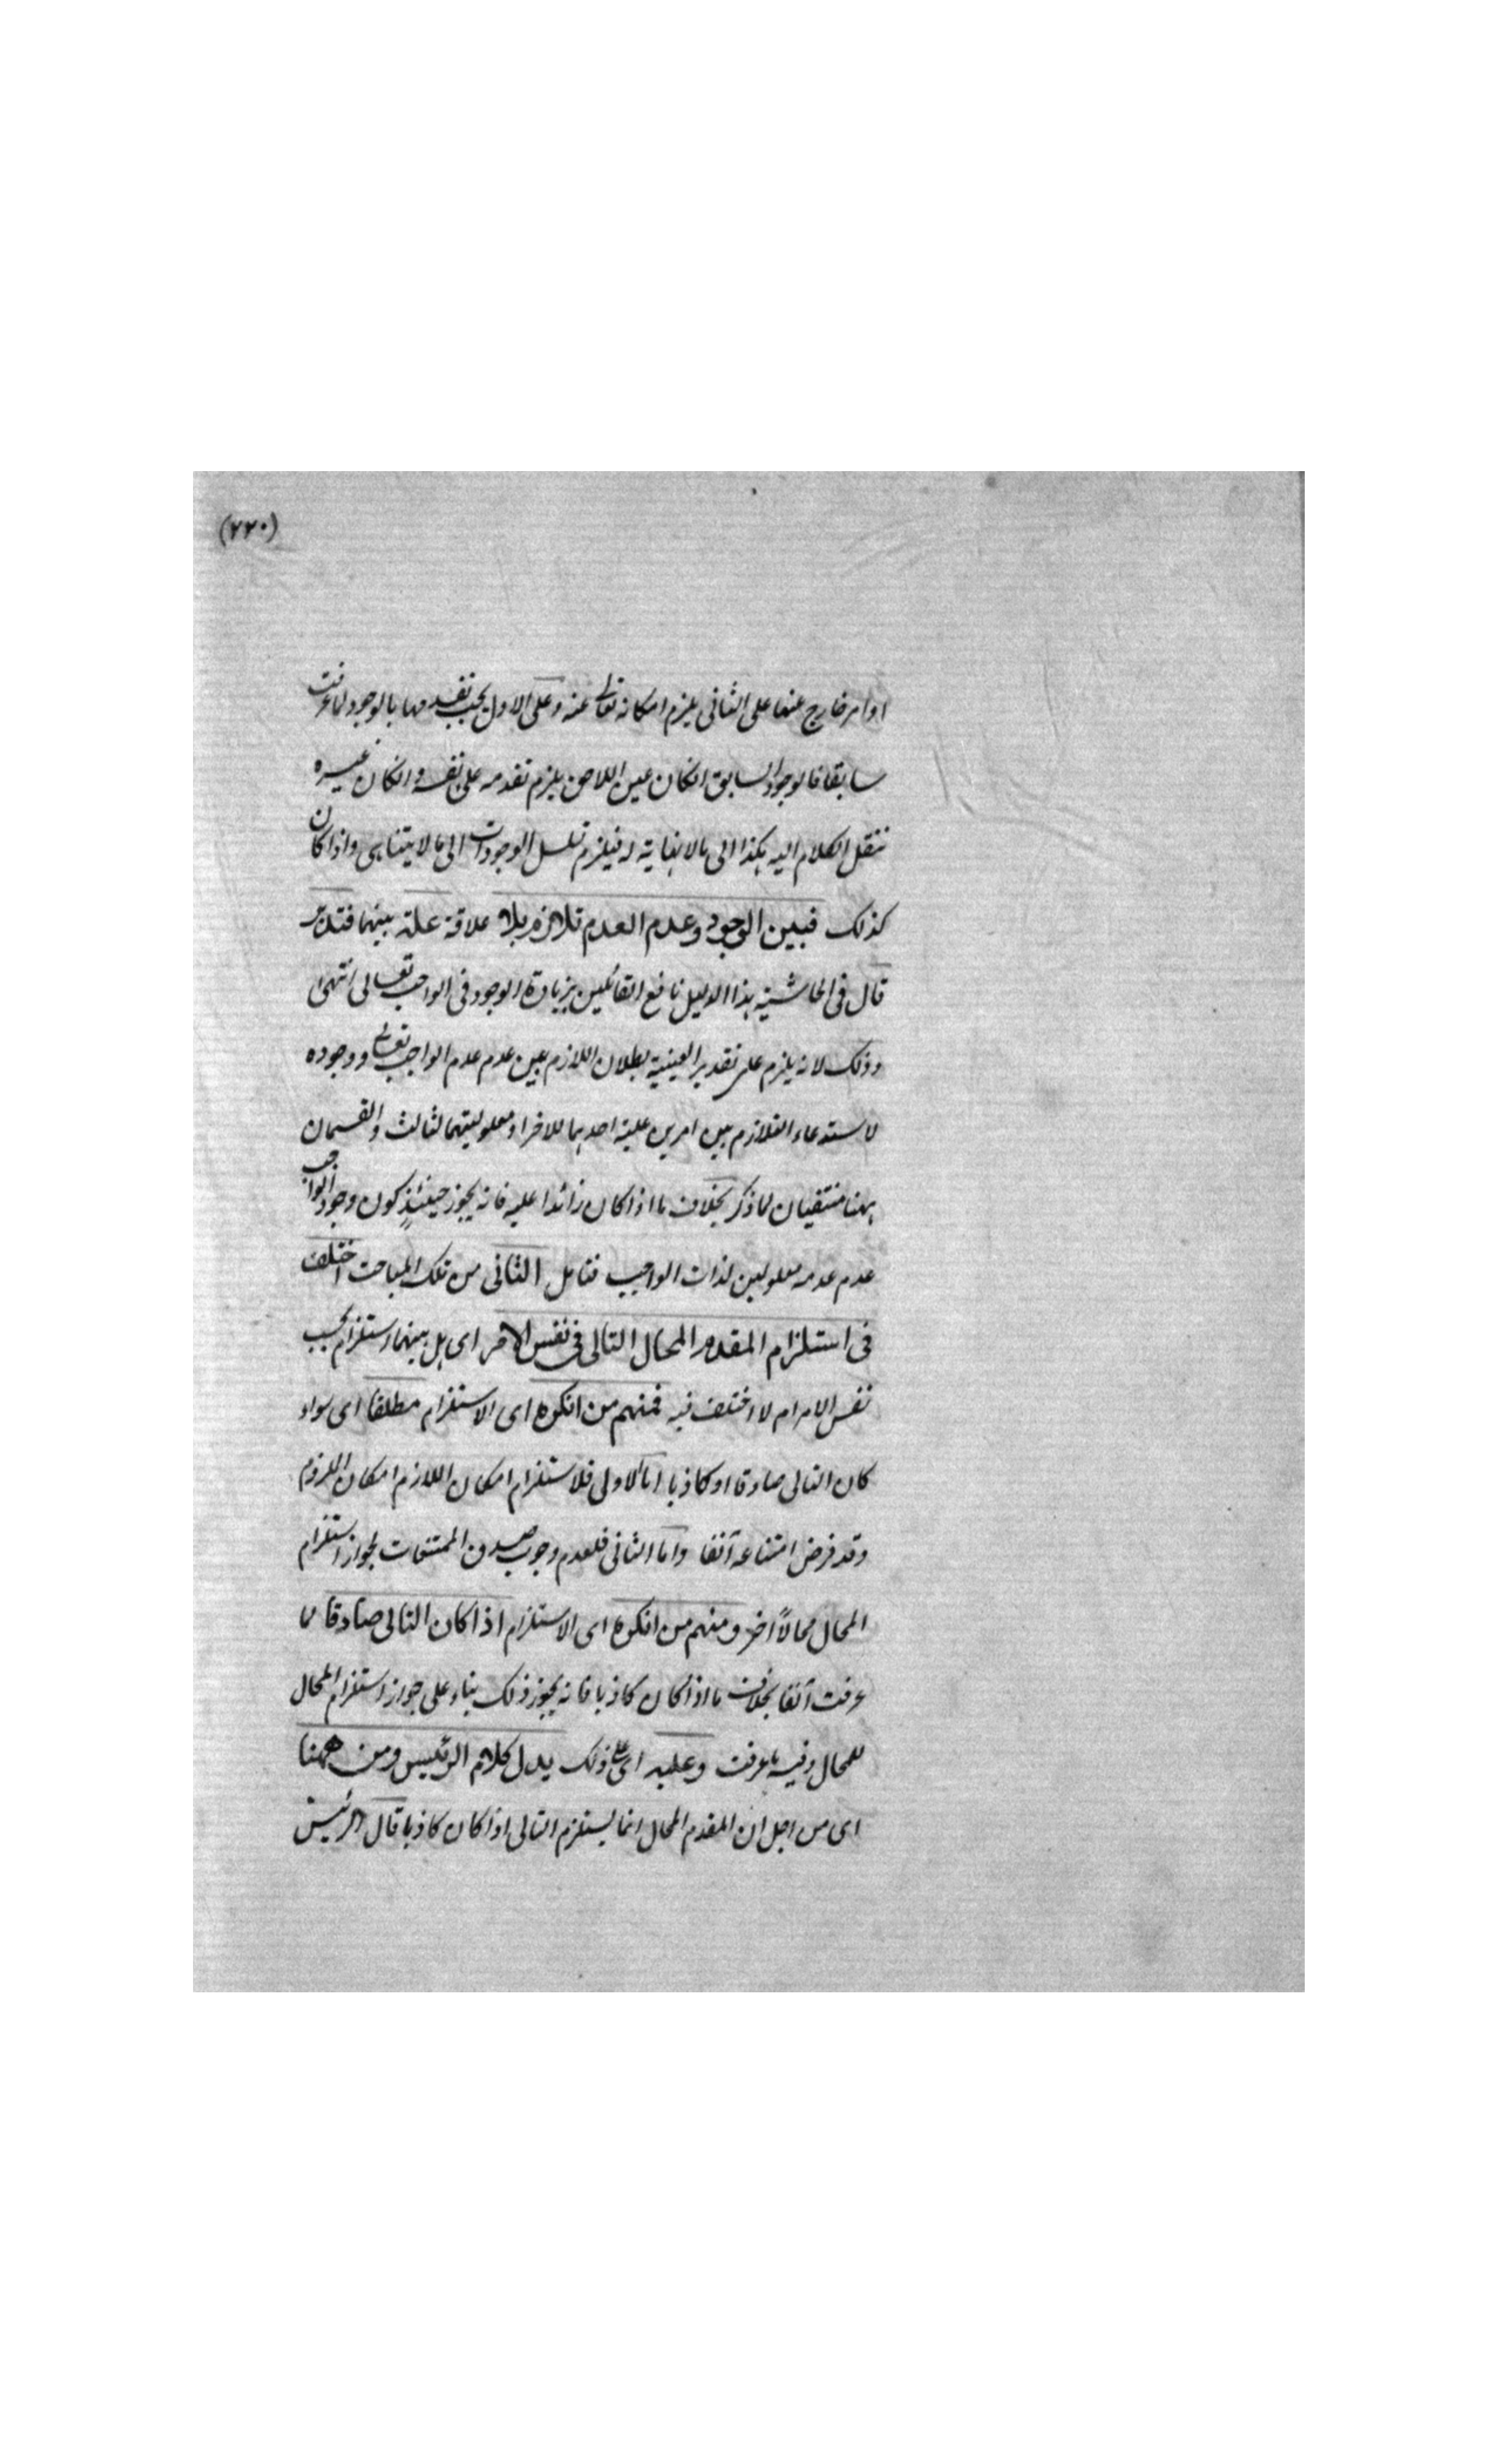 (٢٢٠)
او امر خارج عنها على الثاني يلزم امكانه تعالى عنه وعلى الاول يجب تقدمها بالوجود لما عرفت
سابقا فالوجود السابق انكان عين اللاحق يلزم تقدمه على نفسه وانكان غيره
ننقل الكلام اليه هكذا الى مالا نهاية له فيلزم تسلسل الوجودات الى مالا يتناهى واذا كان
كذلك فبين الوجود وعدم العدم تلازم بلا علاقة علة بينهما فتدبر
قال في الحاشية هذا الدليل نافع القائلين بزيادة الوجود في الواجب تعالى انتهى
وذلك لانه يلزم على تقدير العينية بطلان اللازم بين عدم عدم الواجب تعالى ووجوده
لاستدعاء التلازم بين امرين علية احدهما للاخر او معلوليتهما لثالث والقسمان
ههنا منتفيان لما ذكر بخلاف ما اذا كان زائدا عليه فانه يجوز حينئذٍ كون وجود الواجب
عدم عدمه معلولين لذات الواجب فتامل الثاني من تلك المباحث اختلف
في استلزام المقدم المحال التالي في نفس الامر اى هل بينهما استلزام بحسب
نفس الامر ام لا اختلف فيه فمنهم من انكره اى الاستلزام مطلقا اى سواء
كان التالي صادقا او كاذبا اما الاولى فلاستلزام امكان اللازم امكان الملزوم
وقد فرض امتناعه آنفا واما الثاني فلعدم وجوب صدق الممتنعات لجواز استلزام
المحال محالاً اخر ومنهم من انكره اى الاستلزام اذا كان التالي صادقا لما
عرفت آنفا بخلاف ما اذا كان كاذبا فانه يجوز ذلك بناء على جواز استلزام المحال
للمحال وفيه ما عرفت وعليه اى على ذلك يدل كلام الرئيس ومن ههنا
اى من اجل ان المقدم المحال انما يستلزم التالي اذا كان كاذبا قال الرئيس